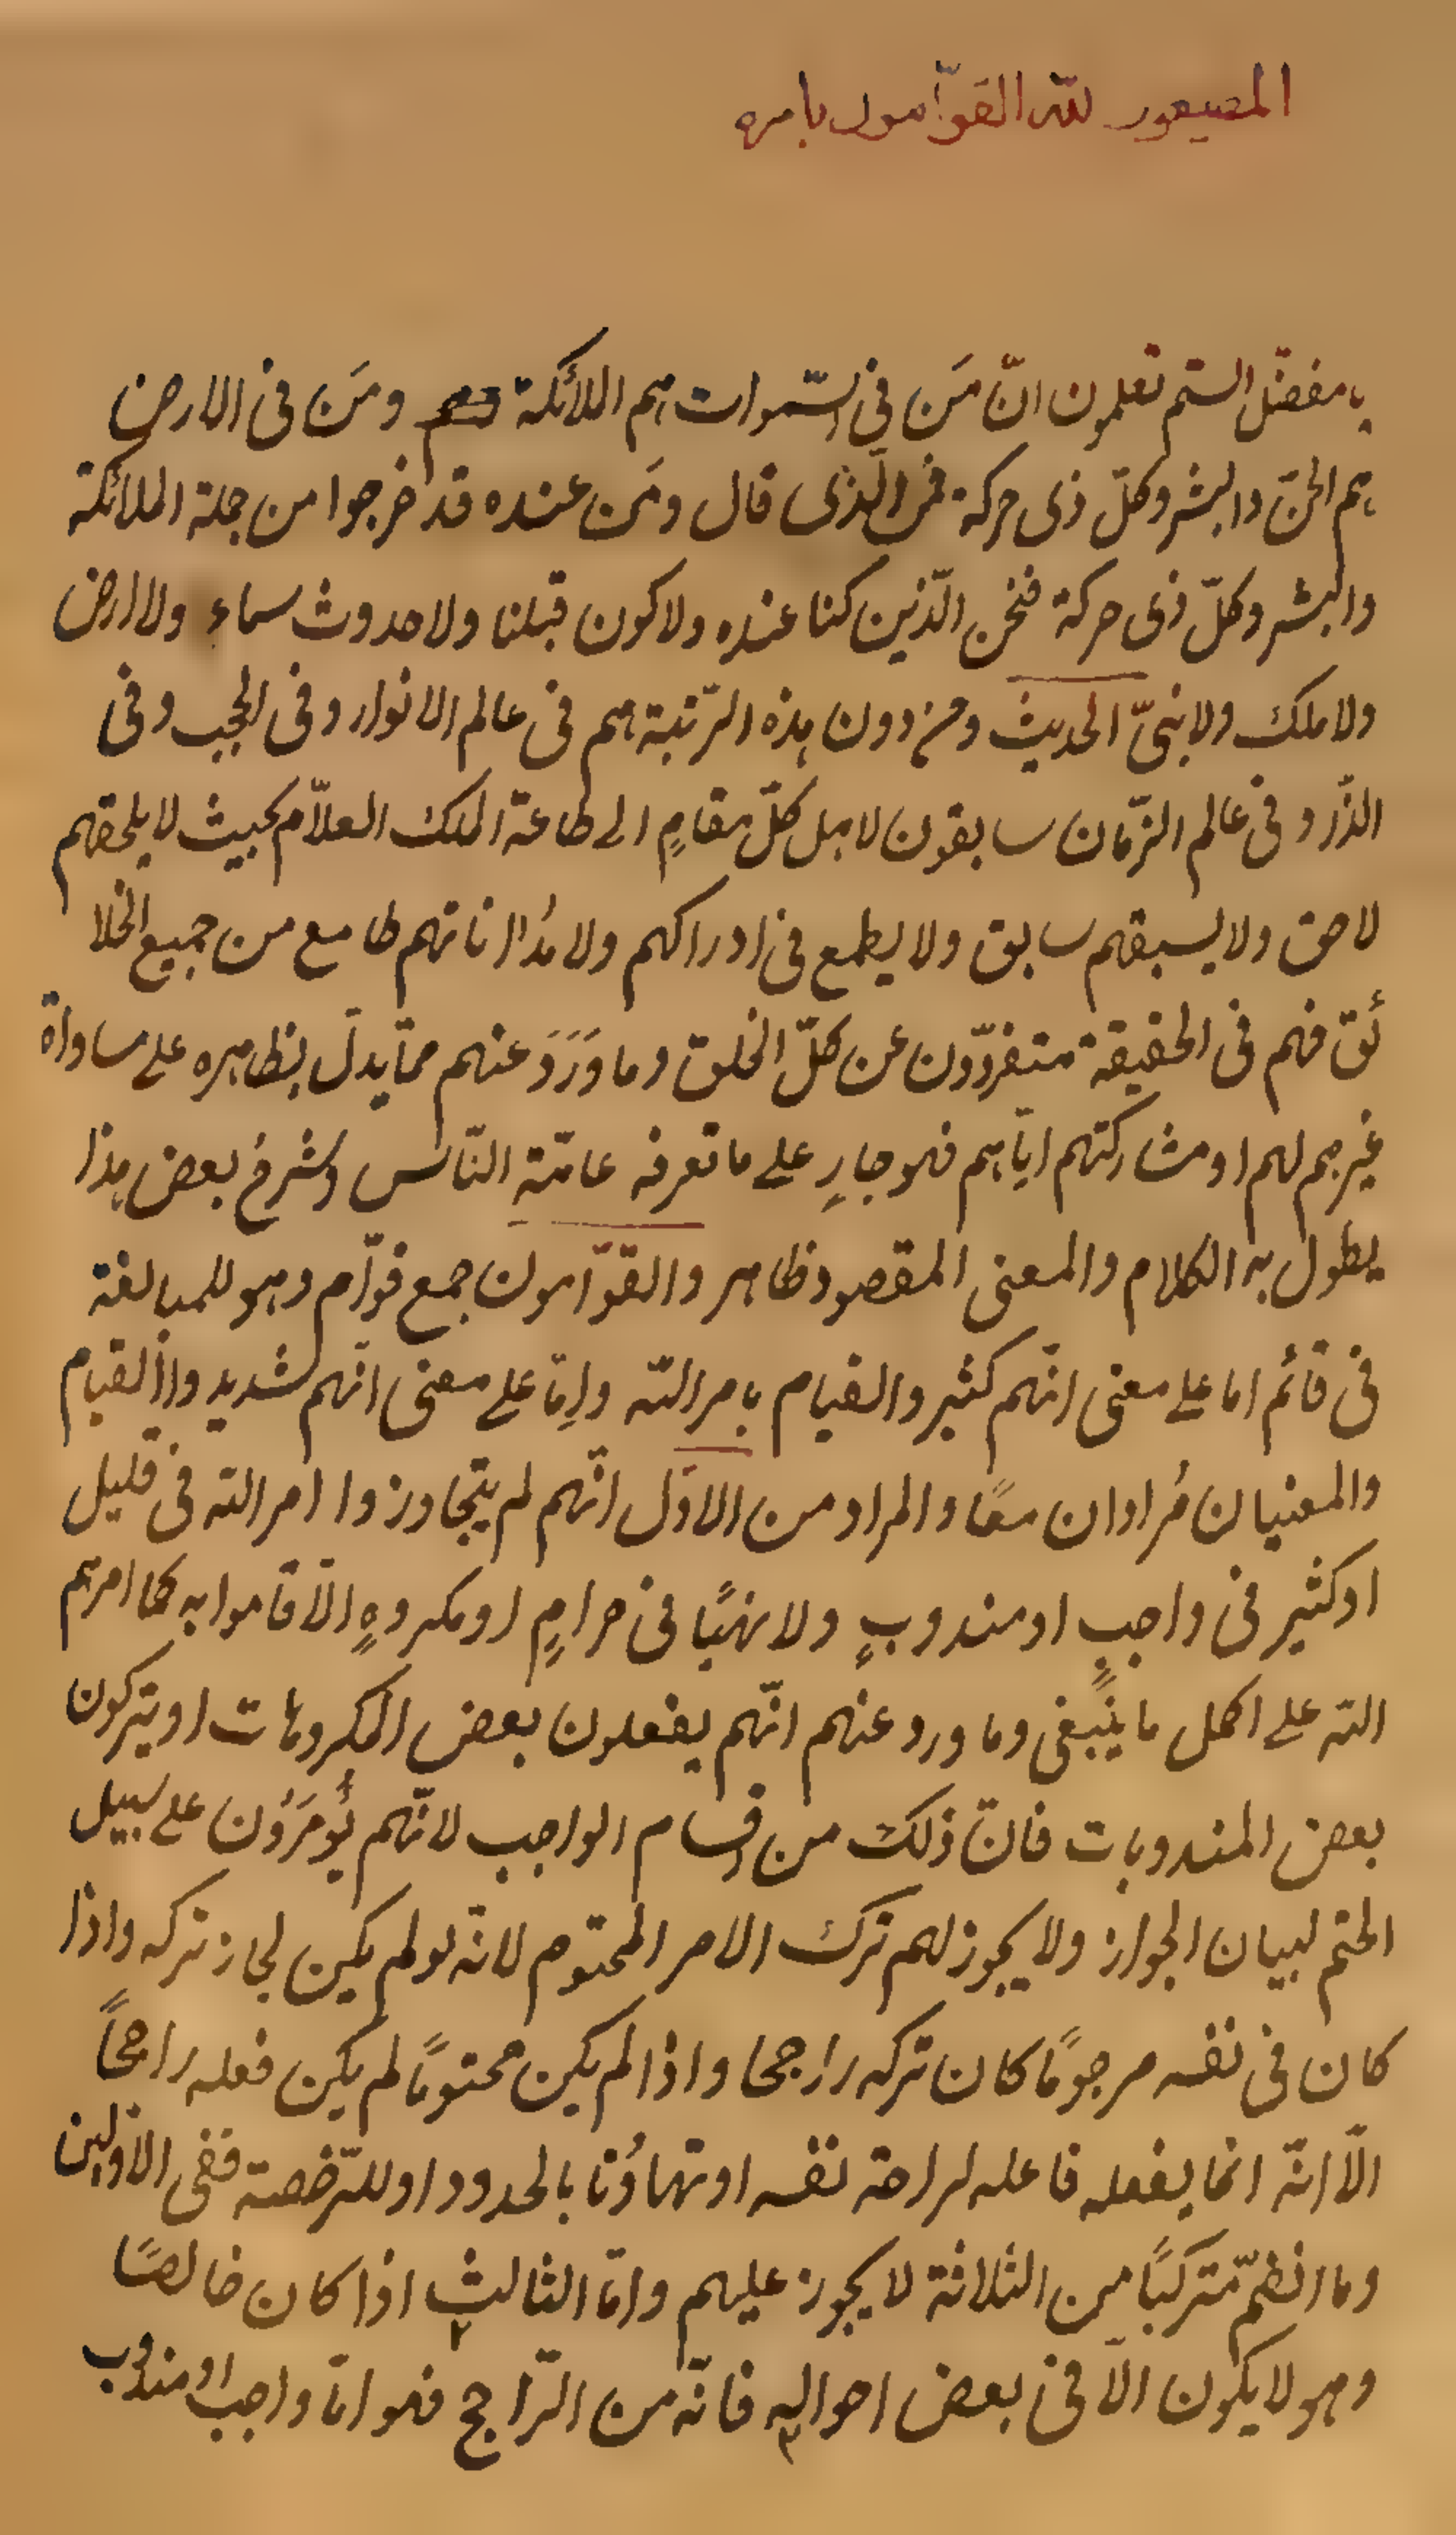 المطيعون لله القوّامون بامره
يا مفضّل الستم تعلمون انّ مَن فی السّموات هم الملائكة ومَن فی الارض
هم الجنّ والبشر وكلّ ذی حركة فمن الّذی قال ومَن عنده قد خرجوا من جملة الملائكة
والبشر وكلّ ذی حركة فنحن الّذین كنا عنده ولا كون قبلنا ولا حدوث سماء ولا ارض
ولا ملك ولا نبیّ الحدیث ومن دون هذه الرّتبة هم فی عالم الانوار وفی الحجب وفی
الذّر و فی عالم الزّمان سابقون لاهل كلّ مقامٍ الی طاعة الملك العلاّم بحیث لا یلحقهم
لاحق ولا یسبقهم سابق ولا یطمع فی ادراكهم ولا مُداناتهم طامع من جمیع الخلا
ئق فهم فی الحقیقة متفرّدون عن كلّ الخلق وما وَرَدَ عنهم ممّا یدلّ بظاهره علی مساواة
غیرهم لهم او مشاركتهم ایّاهم فهو جارِ علی ما تعرفه عامّةِ النّاس وشرحُ بعض هذا
یطول به الكلام والمعنی المقصود ظاهر والقوّامون جمع قوّام وهو للمبالغة
فی قائم اما علی معنی انّهم كثیر والقیام بامر الله وامّا علی معنی انّهم شدید واالقیام
والمعنیان مُرادان معًا والمراد من الاوّل انّهم لم یتجاوزوا امر الله فی قلیل
او كثیر فی واجبٍ او مندوبٍ ولا نهیًا فی حرامٍ او مكروهٍ الاّ قاموا به كما امرهم
الله علی اكمل ما ینبغی وما ورد عنهم انّهم یفعلون بعض المكروهات او یتركون
بعض المندوبات فانّ ذلك من اقسام الواجب لانّهم یُؤمَرُون علی سبیل
الحتم لبیان الجواز ولا یجوز لهم ترك الامر المحتوم لانّه لو لم یكن لجاز تركه واذا
كان فی نفسه مرجوحًا كان تركه راجحا واذا لم یكن محتومًا لم یكن فعله راجحًا
الاّ انّه انما یفعله فاعله لراحة نفسه او تهاوُنا بالحدود او للتّرخصة ففی الاوّلین
وما انضمّ متركبًا من الثلاثة لا یجوز علیهم وامّا الثالث اذا كان خالصًا
وهو لا یكون الاّ فی بعض احواله فانّه من الرّاجح فهو امّا واجب او مندوب